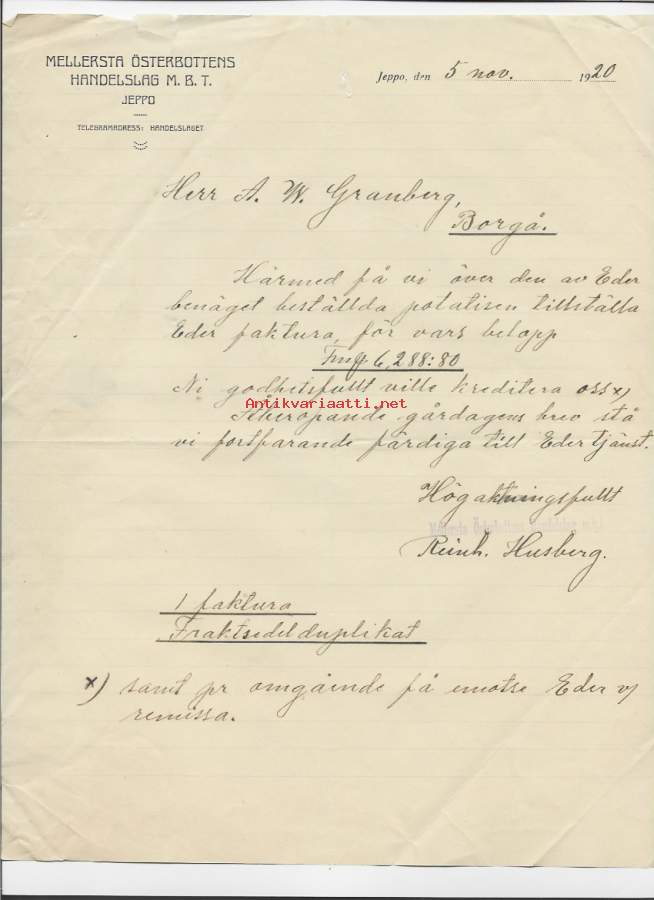 MELLERSTA ÖSTERBOTTENS
HANDELSLAG M. B. T.
JEPPO
TELEGRAMADRESS: HANDELSLAGET
Jeppo, den 5 nov. 1920
Herr A. W. Granberg,
Borgå.
Härmed få vi över den av Eder
benäget beställda potatisen tillställa
Eder faktura, för vars belopp
Fmg 6,288:80
Ni godhetsfullt ville kreditera oss x)
Antikvariaatti.net
Åberopande gårdagens brev stå
vi fortfarande färdiga till Eder tjänst.
Högaktningsfullt
Reinh. Husberg.
1 faktura
Fraktsedelduplikat
x) samt pr omgående få emotse Eder
remissa.